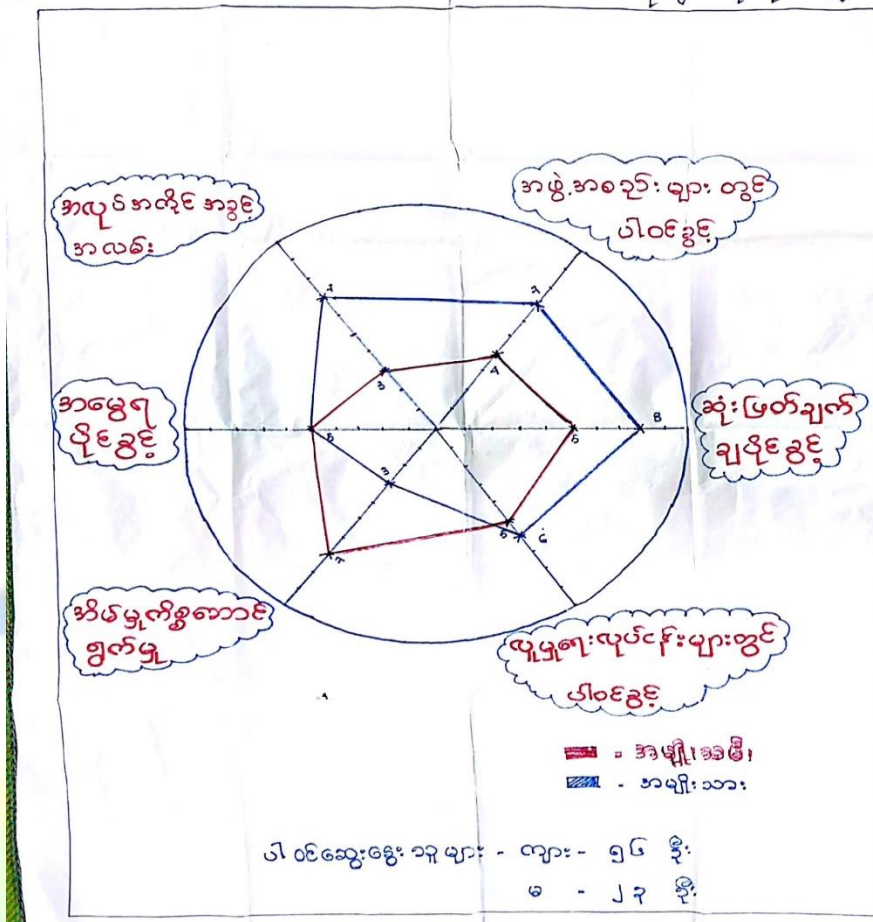 အလုပ်အကိုင် အခွင့်
အလမ်း
အဖွဲ့အစည်း များ တွင်
ပါဝင်ခွင့်
အမွေရ
ပိုင်ခွင့်
ဆုံးဖြတ်ချက်
ချပိုင်ခွင့်
အိမ်မှုကိစ္စဆောင်
ရွက်မှု
လူမှုရေးလုပ်ငန်းများတွင်
ပါဝင်ခွင့်
7
7
3
4
5
5
8
3
5
7
- အမျိုးသမီး
- အမျိုးသား
ပါဝင်ဆွေးနွေးသူများ - ကျား - ၅၆ ဦး
မ - ၂၃ ဦး